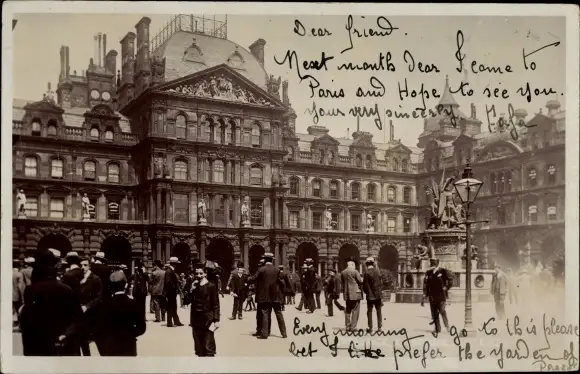 Dear friend.
Next month Dear I come to
Paris and Hope to see you.
Your very sincerely
Every morning I go to this please
bet I like prefer the yarden of